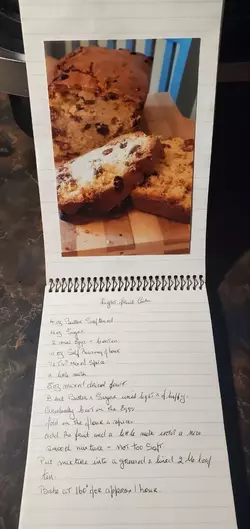 Light Fruit Cake
4 oz Butter Softened
4 oz Sugar
2 med Eggs - beaten
oz Self Raising flour
½ tsp mixed spice
a little milk
8 oz mixed dried fruit
Beat Butter & Sugar until light & fluffy.
Gradually beat in the Eggs
fold in the flour & spices
add the fruit and a little milk until a nice
smooth mixture - Not too Soft
Put mixture into a greased & lined 2 lb loaf
tin.
Bake at 160° for approx 1 hour.